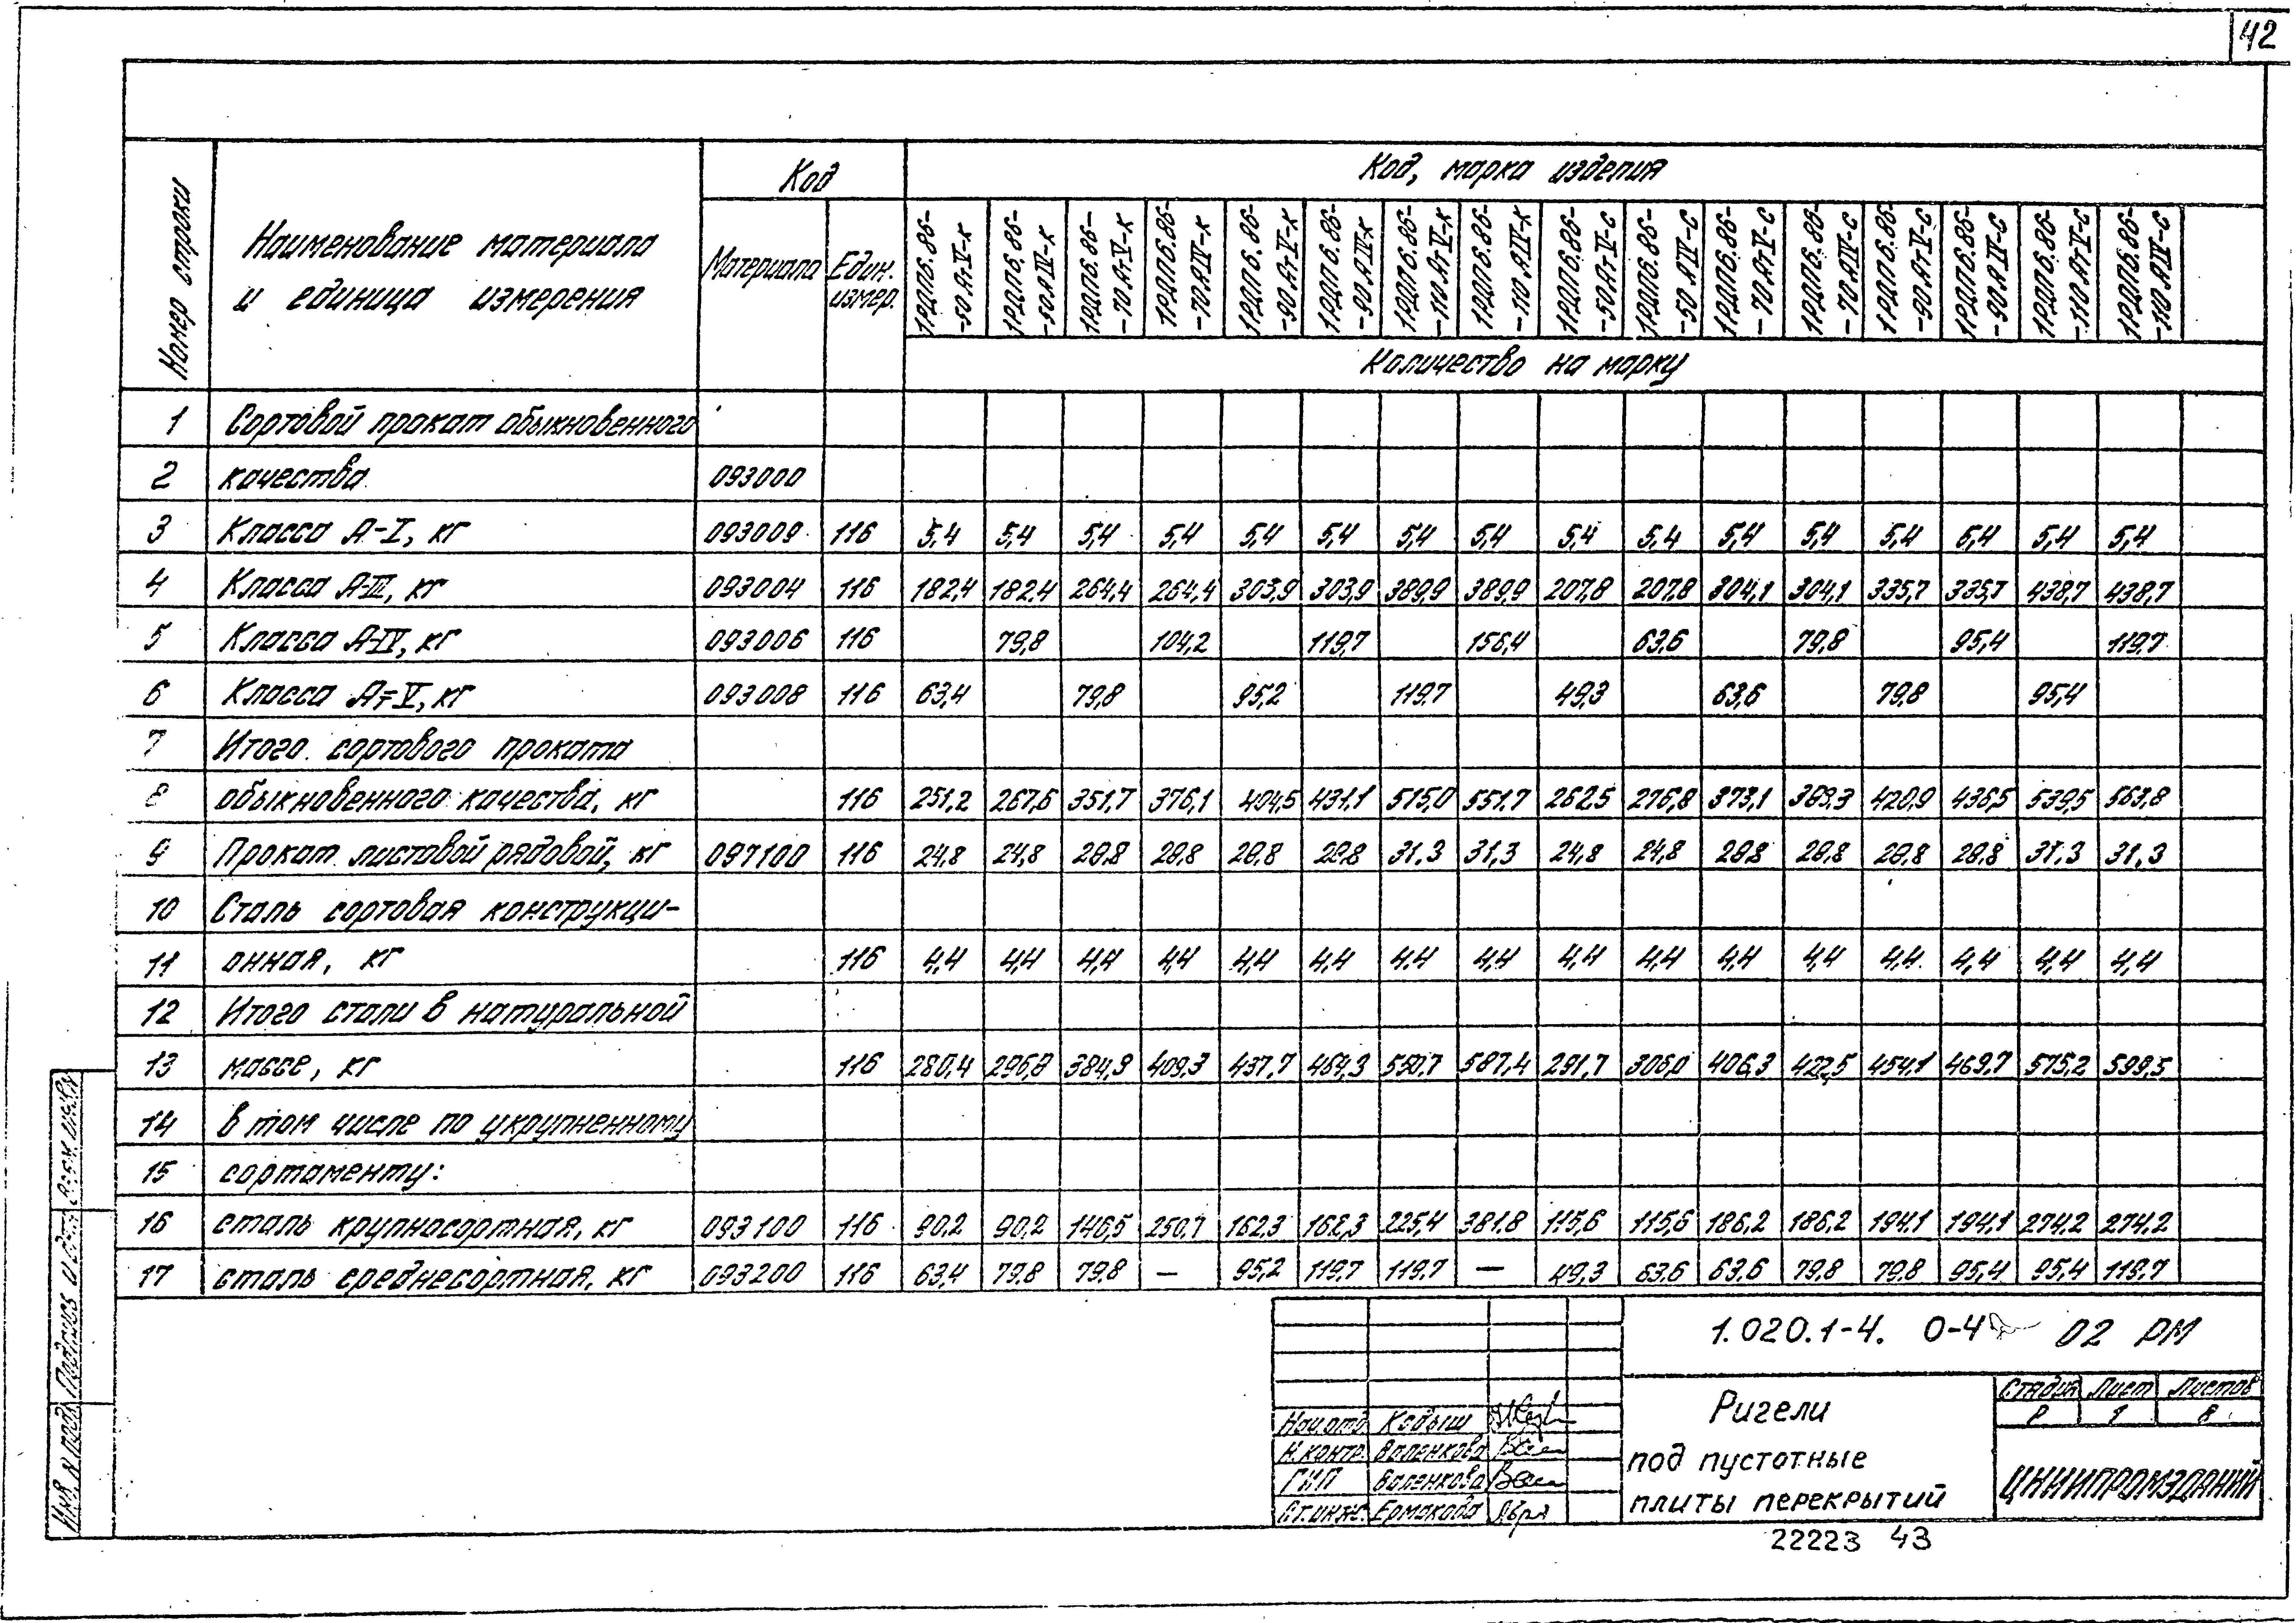 42
Номер строки
Наименование материала
и единица измерения
Код
Материала
Един.
измер.
Код, марка изделия
1РДП6.86-
-50 АтV-к
1РДП6.86-
-50 АIV-к
1РДП6.86-
-70 АтV-к
1РДП6.86-
-70 АIV-к
1РДП6.86-
-90 АтV-к
1РДП6.86-
-90 АIV-к
1РДП6.86-
-110 АтV-к
1РДП6.86-
-110 АIV-к
1РДП6.86-
-50 АтV-с
1РДП6.86-
-50 АIV-с
1РДП6.86-
-70 АтV-с
1РДП6.86-
-70 АIV-с
1РДП6.86-
-90 АтV-с
1РДП6.86-
-90 АIV-с
1РДП6.86-
-110 АтV-с
1РДП6.86-
-110 АIV-с
Количество на марку
1 Сортовой прокат обыкновенного
2 качества 093000
3 Класса А-I, кг 093009 116 5,4 5,4 5,4 5,4 5,4 5,4 5,4 5,4 5,4 5,4 5,4 5,4 5,4 5,4 5,4 5,4
4 Класса А-III, кг 093004 116 182,4 182,4 264,4 264,4 303,9 303,9 389,9 389,9 207,8 207,8 304,1 304,1 335,7 335,7 438,7 438,7
5 Класса А-IV, кг 093006 116 79,8 104,2 119,7 156,4 63,6 79,8 95,4 119,7
6 Класса Ат-V, кг 093008 116 63,4 79,8 95,2 119,7 49,3 63,6 79,8 95,4
7 Итого сортового проката
8 обыкновенного качества, кг 116 251,2 267,6 351,7 376,1 404,5 431,1 515,0 551,7 262,5 276,8 373,1 389,3 420,9 436,5 539,5 563,8
9 Прокат листовой рядовой, кг 097100 116 24,8 24,8 28,8 28,8 28,8 28,8 31,3 31,3 24,8 24,8 28,8 28,8 28,8 28,8 31,3 31,3
10 Сталь сортовая конструкци-
11 онная, кг 116 4,4 4,4 4,4 4,4 4,4 4,4 4,4 4,4 4,4 4,4 4,4 4,4 4,4 4,4 4,4 4,4
12 Итого стали в натуральной
13 массе, кг 116 280,4 296,8 384,9 409,3 437,7 464,3 550,7 587,4 291,7 306,0 406,3 422,5 454,1 469,7 575,2 599,5
14 в том числе по укрупненному
15 сортаменту:
16 сталь крупносортная, кг 093100 116 90,2 90,2 146,5 250,7 162,3 162,3 225,4 381,8 115,6 115,6 186,2 186,2 194,1 194,1 274,2 274,2
17 сталь среднесортная, кг 093200 116 63,4 79,8 79,8 — 95,2 119,7 119,7 — 49,3 63,6 63,6 79,8 79,8 95,4 95,4 119,7
1.020.1-4. 0-4 02 РМ
Ригели
под пустотные
плиты перекрытий
Стадия Лист Листов
Р 1 8
ЦНИИПРОМЗДАНИЙ
Нач.отд. Кодыш
Н.контр. Валенкова
ГИП Валенкова
Ст.инж. Ермакова
Инв. N подл. Подпись и дата Взам. инв. N
22223 43